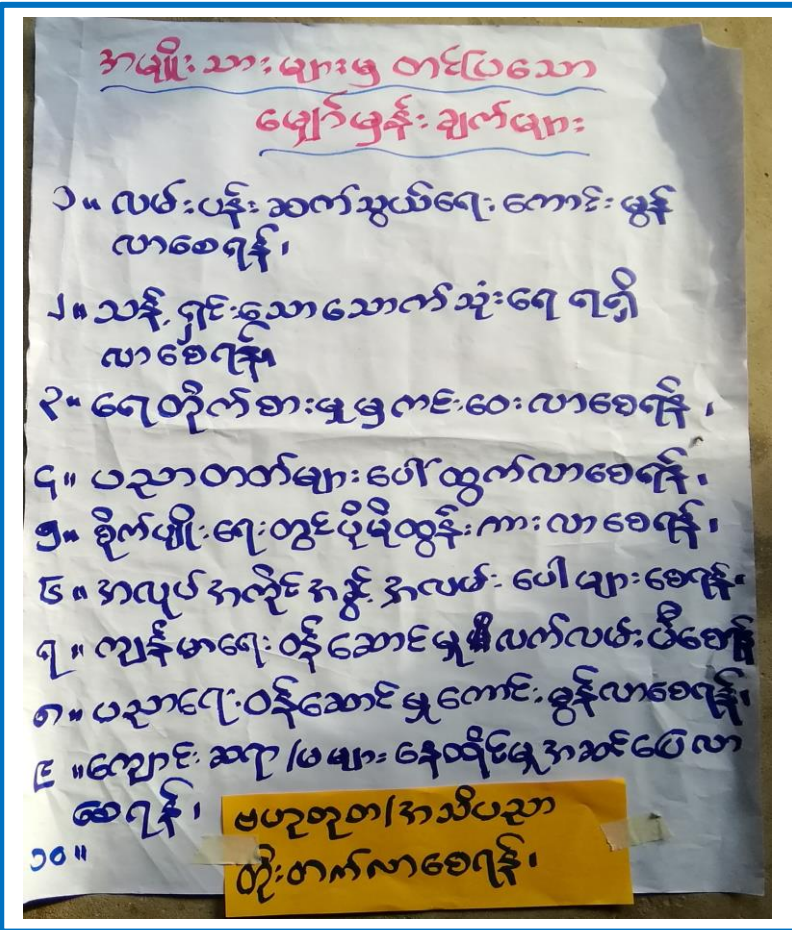 အမျိုးသားများမှ တင်ပြသော
မျှော်မှန်းချက်များ
၁။ လမ်းပန်းဆက်သွယ်ရေးကောင်းမွန်
လာစေရန်၊
၂။ သန့်ရှင်းသောသောက်သုံးရေ ရရှိ
လာစေရန်၊
၃။ ရေတိုက်စားမှုမှကင်းဝေးလာစေရန်၊
၄။ ပညာတတ်များပေါ်ထွက်လာစေရန်၊
၅။ စိုက်ပျိုးရေးတွင်ပိုမိုထွန်းကားလာစေရန်၊
၆။ အလုပ်အကိုင်အခွင့်အလမ်းပေါများစေရန်၊
၇။ ကျန်းမာရေးဝန်ဆောင်မှုလက်လမ်းမီစေရန်
၈။ ပညာရေးဝန်ဆောင်မှုကောင်းမွန်လာစေရန်၊
၉။ ကျောင်းဆရာ/မများနေထိုင်မှုအဆင်ပြေလာ
စေရန်၊
၁၀။ ဗဟုတုတ/အသိပညာ
တိုးတက်လာစေရန်၊